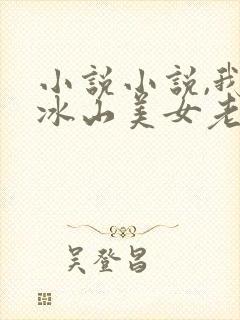 小说小说,我
冰山美女老
吴登昌